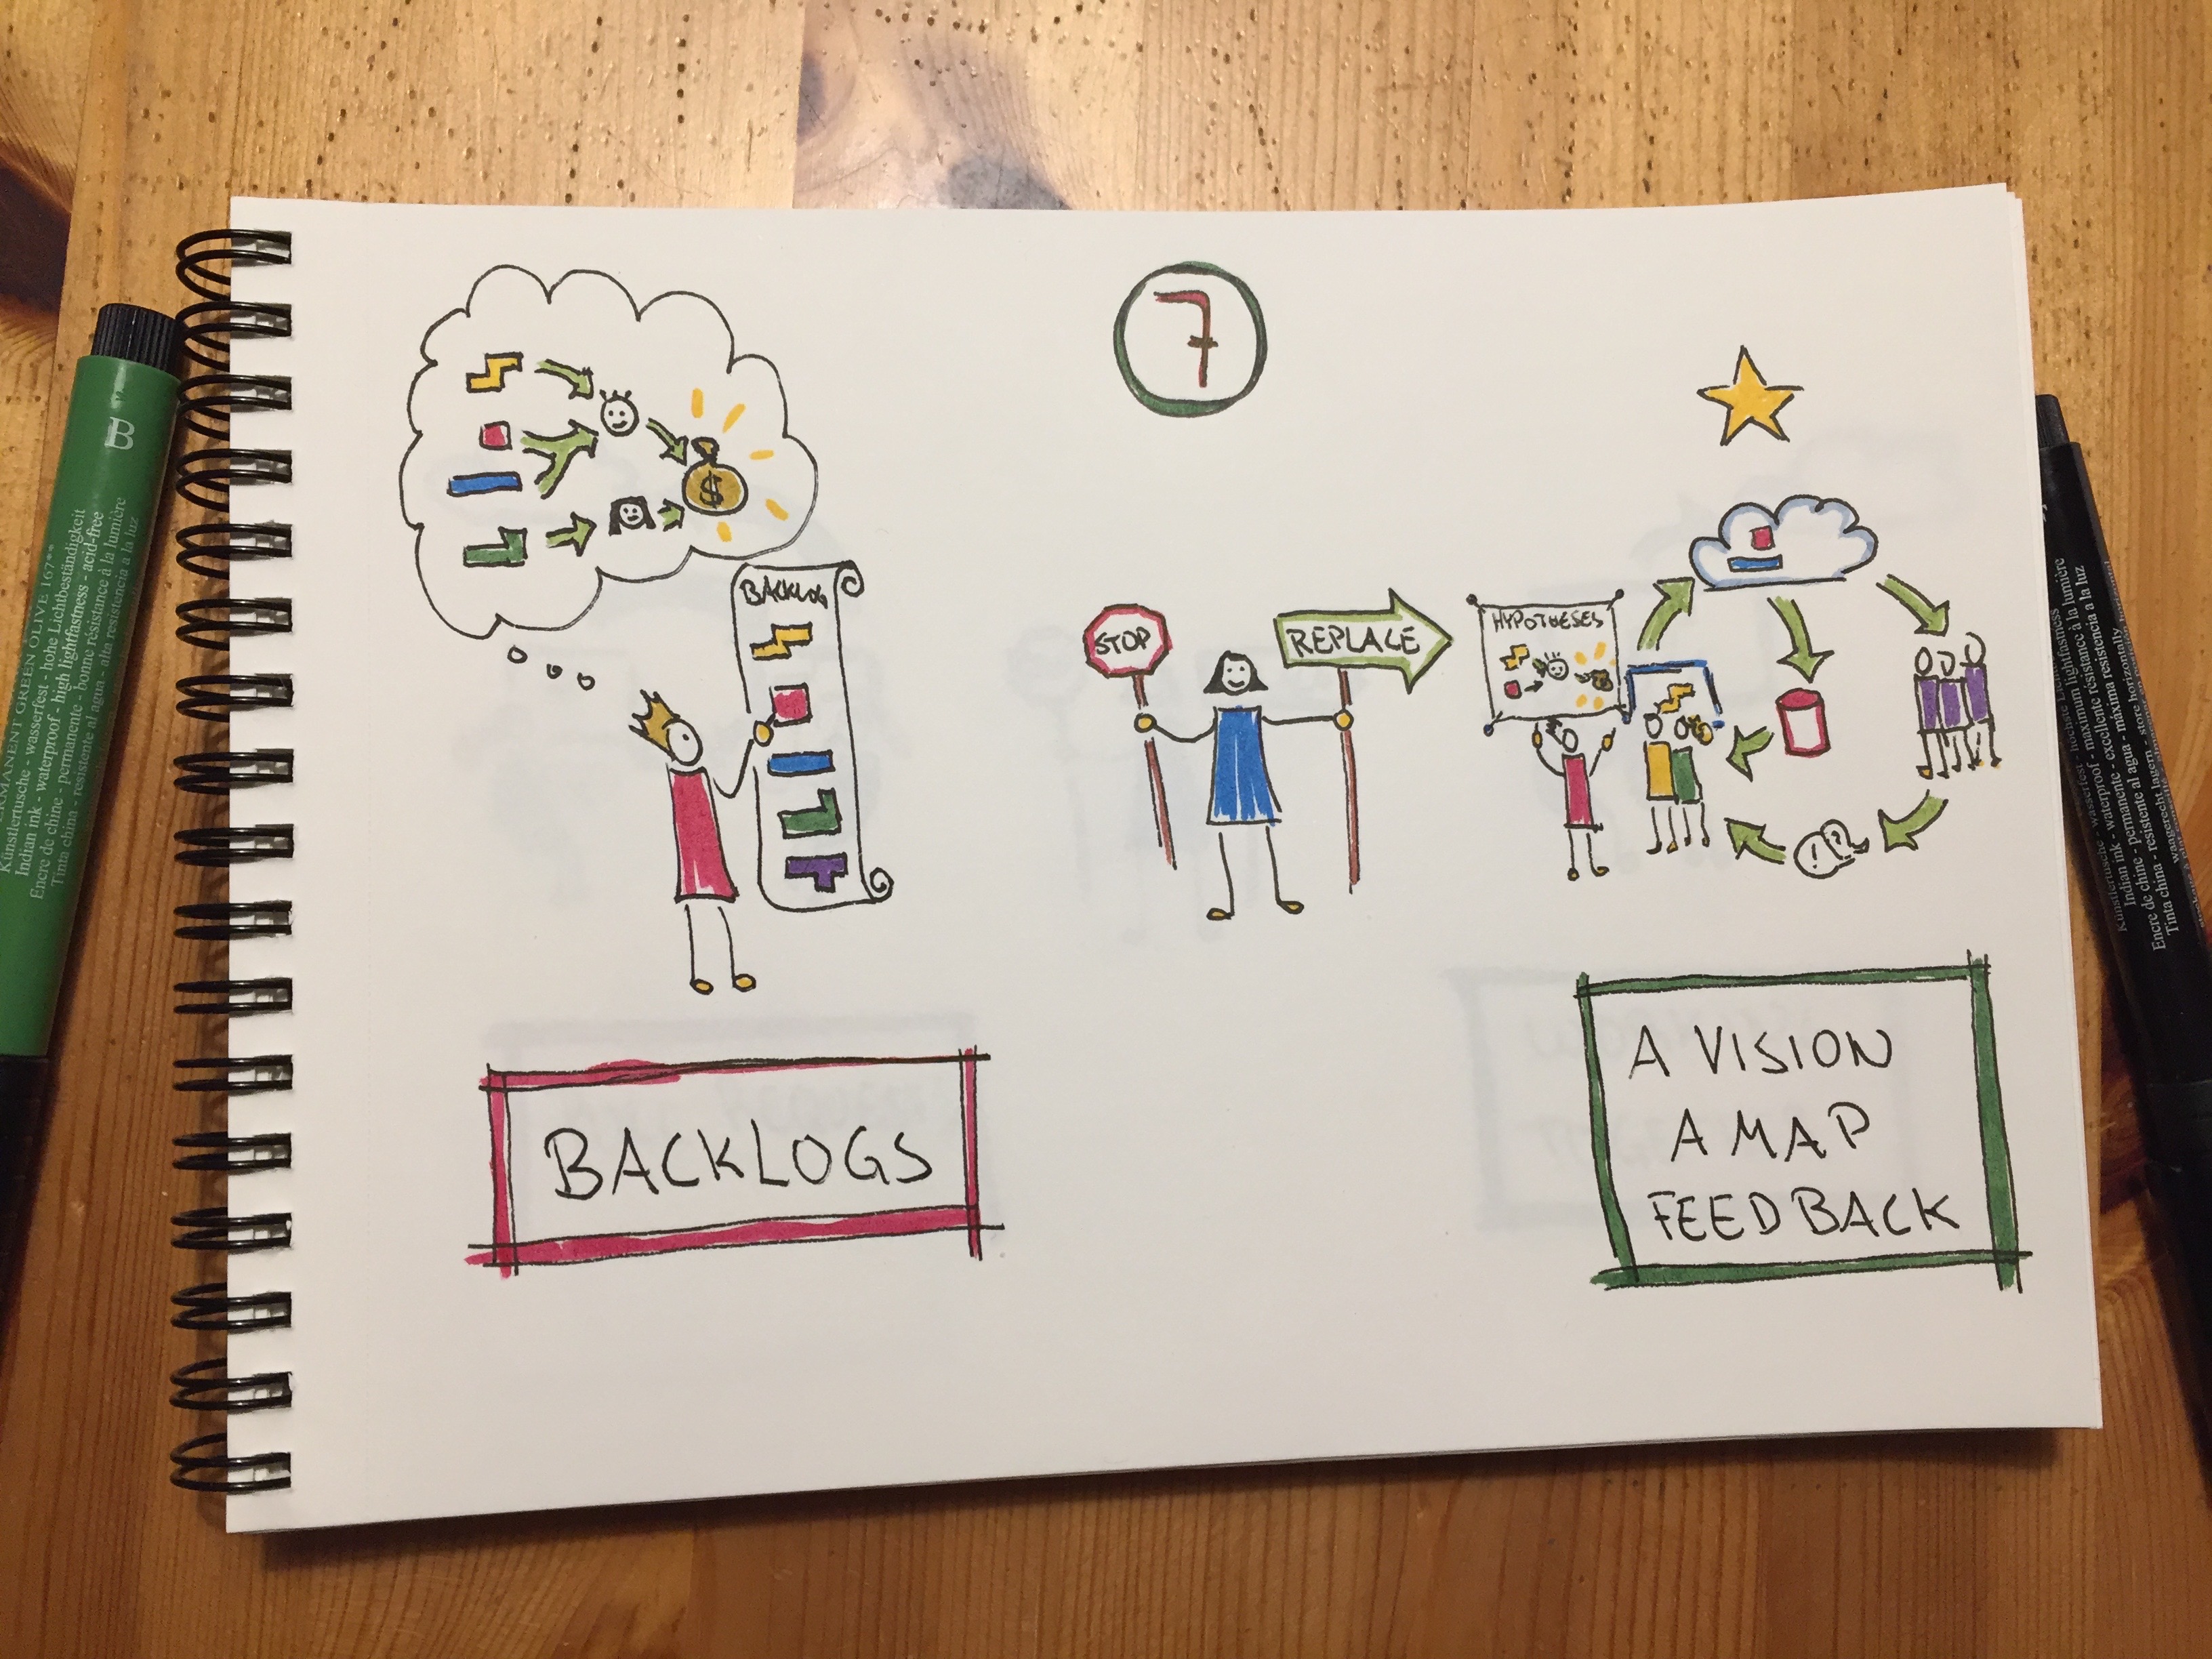 7
BACKLOG
$
STOP
REPLACE
HYPOTHESES
! ?
BACKLOGS
A VISION
A MAP
FEEDBACK
B
PERMANENT GREEN OLIVE 167**
Künstlertusche - wasserfest - hohe Lichtbeständigkeit
Indian ink - waterproof - high lightfastness - acid-free
Encre de chine - permanente - bonne résistance à la lumière
Tinta china - resistente al agua - alta resistencia a la luz
Künstlertusche - wasserfest - höchste Lichtbeständigkeit
Indian ink - waterproof - maximum lightfastness
Encre de chine - permanente - excellente résistance à la lumière
Tinta china - resistente al agua - máxima resistencia a la luz